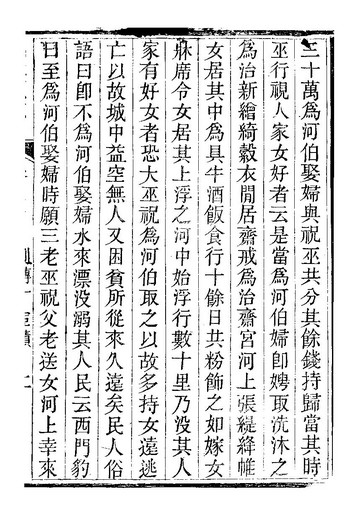 二十萬爲河伯娶婦與祝巫共分其餘錢持歸當其時
巫行視人家女好者云是當爲河伯婦卽娉取洗沐之
爲治新繒綺縠衣閒居齋戒爲治齋宮河上張緹絳帷
女居其中爲具牛酒飯食行十餘日共粉飾之如嫁女
牀席令女居其上浮之河中始浮行數十里乃没其人
家有好女者恐大巫祝爲河伯取之以故多持女遠逃
亡以故城中益空無人又困貧所從來久遠矣民人俗
語曰卽不爲河伯娶婦水來漂没溺其人民云西門豹
曰至爲河伯娶婦時願三老巫祝父老送女河上幸來